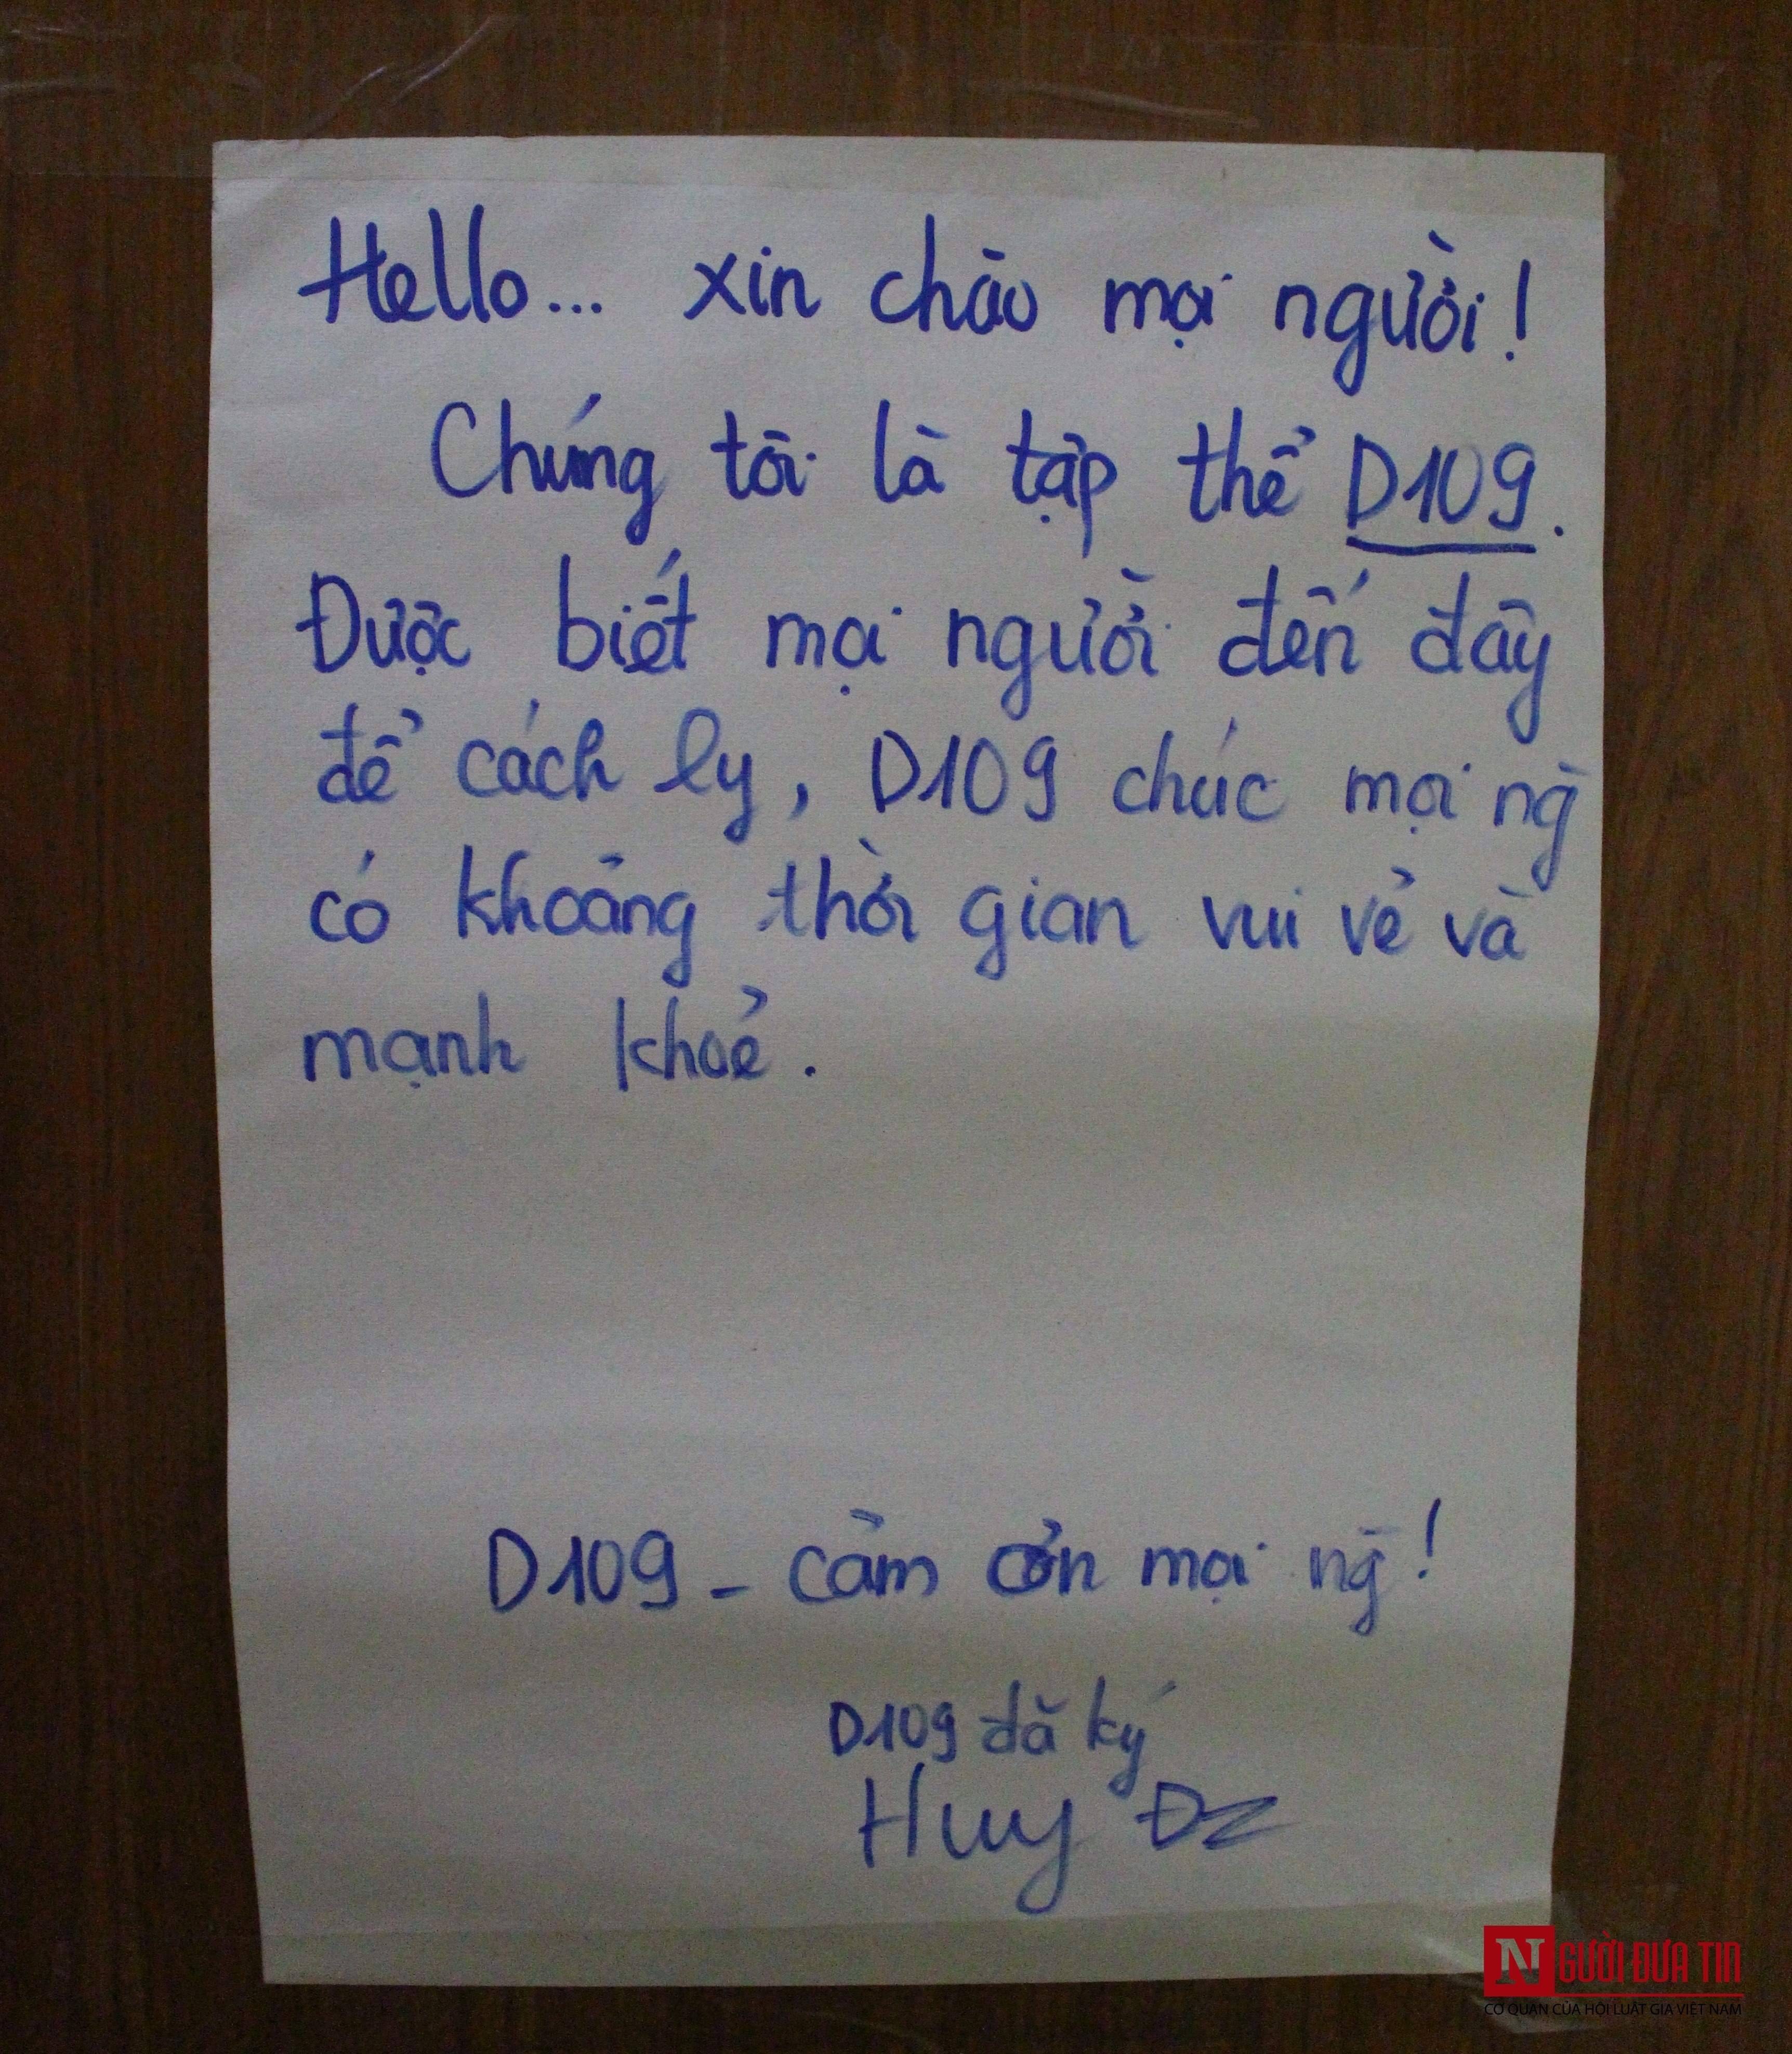 Hello... xin chào mọi người!
Chúng tôi là tập thể D109.
Được biết mọi người đến đây
để cách ly, D109 chúc mọi ng̀
có khoảng thời gian vui vẻ và
mạnh khoẻ.
D109 - cảm ơn mọi ng̀!
D109 đã ký
Huy Đz
NGƯỜI ĐƯA TIN
CƠ QUAN CỦA HỘI LUẬT GIA VIỆT NAM